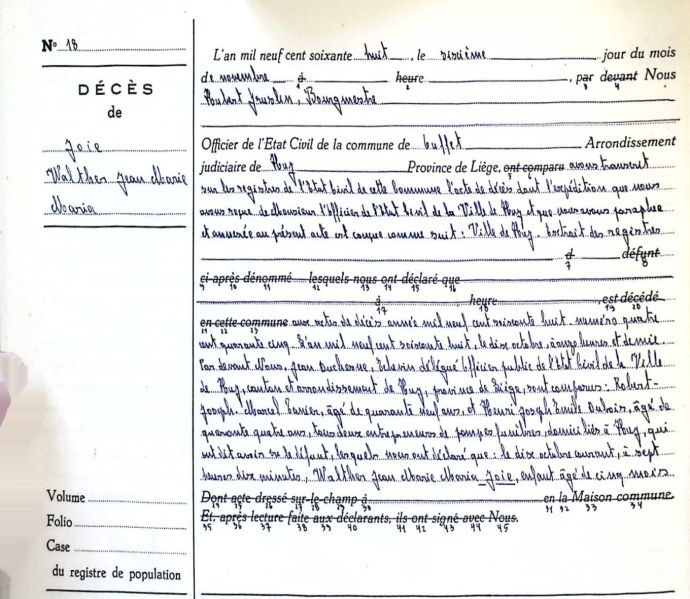 Nº 18
DÉCÈS
de
Joie
Walther Jean Marie
Maria
L'an mil neuf cent soixante huit, le sixième jour du mois
de novembre à heure, par devant Nous
2 3 4
Hubert , Bourgmestre
Officier de l'Etat Civil de la commune de Huy Arrondissement
judiciaire de Huy Province de Liège, ont comparu avons transcrit
sur les registres de l'Etat Civil de cette Commune l'acte de décès dont l'expédition que nous
avons reçue de Monsieur l'Officier de l'Etat Civil de la Ville de Huy et que nous avons paraphée
et annexée au présent acte est conçue comme suit : Ville de Huy. Extrait des registres
d défunt
7 8
ci-après dénommé lesquels nous ont déclaré que
9 10 11 12 13 14 15 16
à heure, est décédé
17 18 19 20
en cette commune aux actes de décès année mil neuf cent soixante huit. numéro quatre
21 22 23
cent quarante cinq. L'an mil neuf cent soixante huit, le dix octobre, à onze heures et demie
Par devant Nous, Jean Duchesne, Echevin délégué Officier public de l'Etat Civil de la Ville
de Huy, canton et arrondissement de Huy, province de Liège, sont comparus : Robert-
Joseph-Marcel , âgé de quarante neuf ans, et Henri Joseph Emile Dubois, âgé de
quarante quatre ans, tous deux entrepreneurs de pompes funèbres, domiciliés à Huy, qui
ont dit avoir vu le défunt, lesquels nous ont déclaré que : le dix octobre courant, à sept
heures dix minutes, Walther Jean Marie Maria Joie, enfant âgé de cinq mois
Dont acte dressé sur-le-champ à en la Maison commune
24 25 26 27 28 29 30 31 32 33 34
Et, après lecture faite aux déclarants, ils ont signé avec Nous.
35 36 37 38 39 40 41 42 43 44 45
Volume
Folio
Case
du registre de population